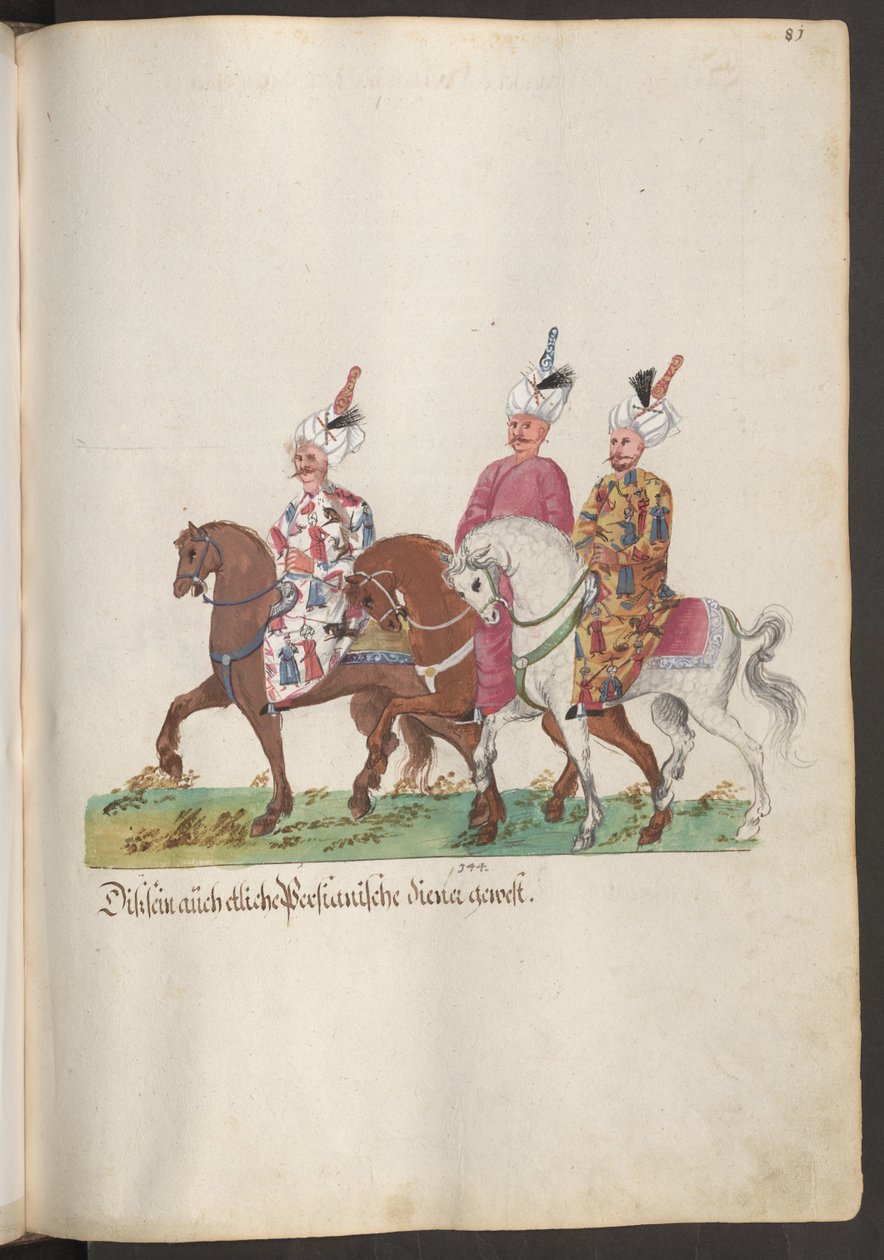 81
344.
Diß sein auch etliche Persianische diener gewest.